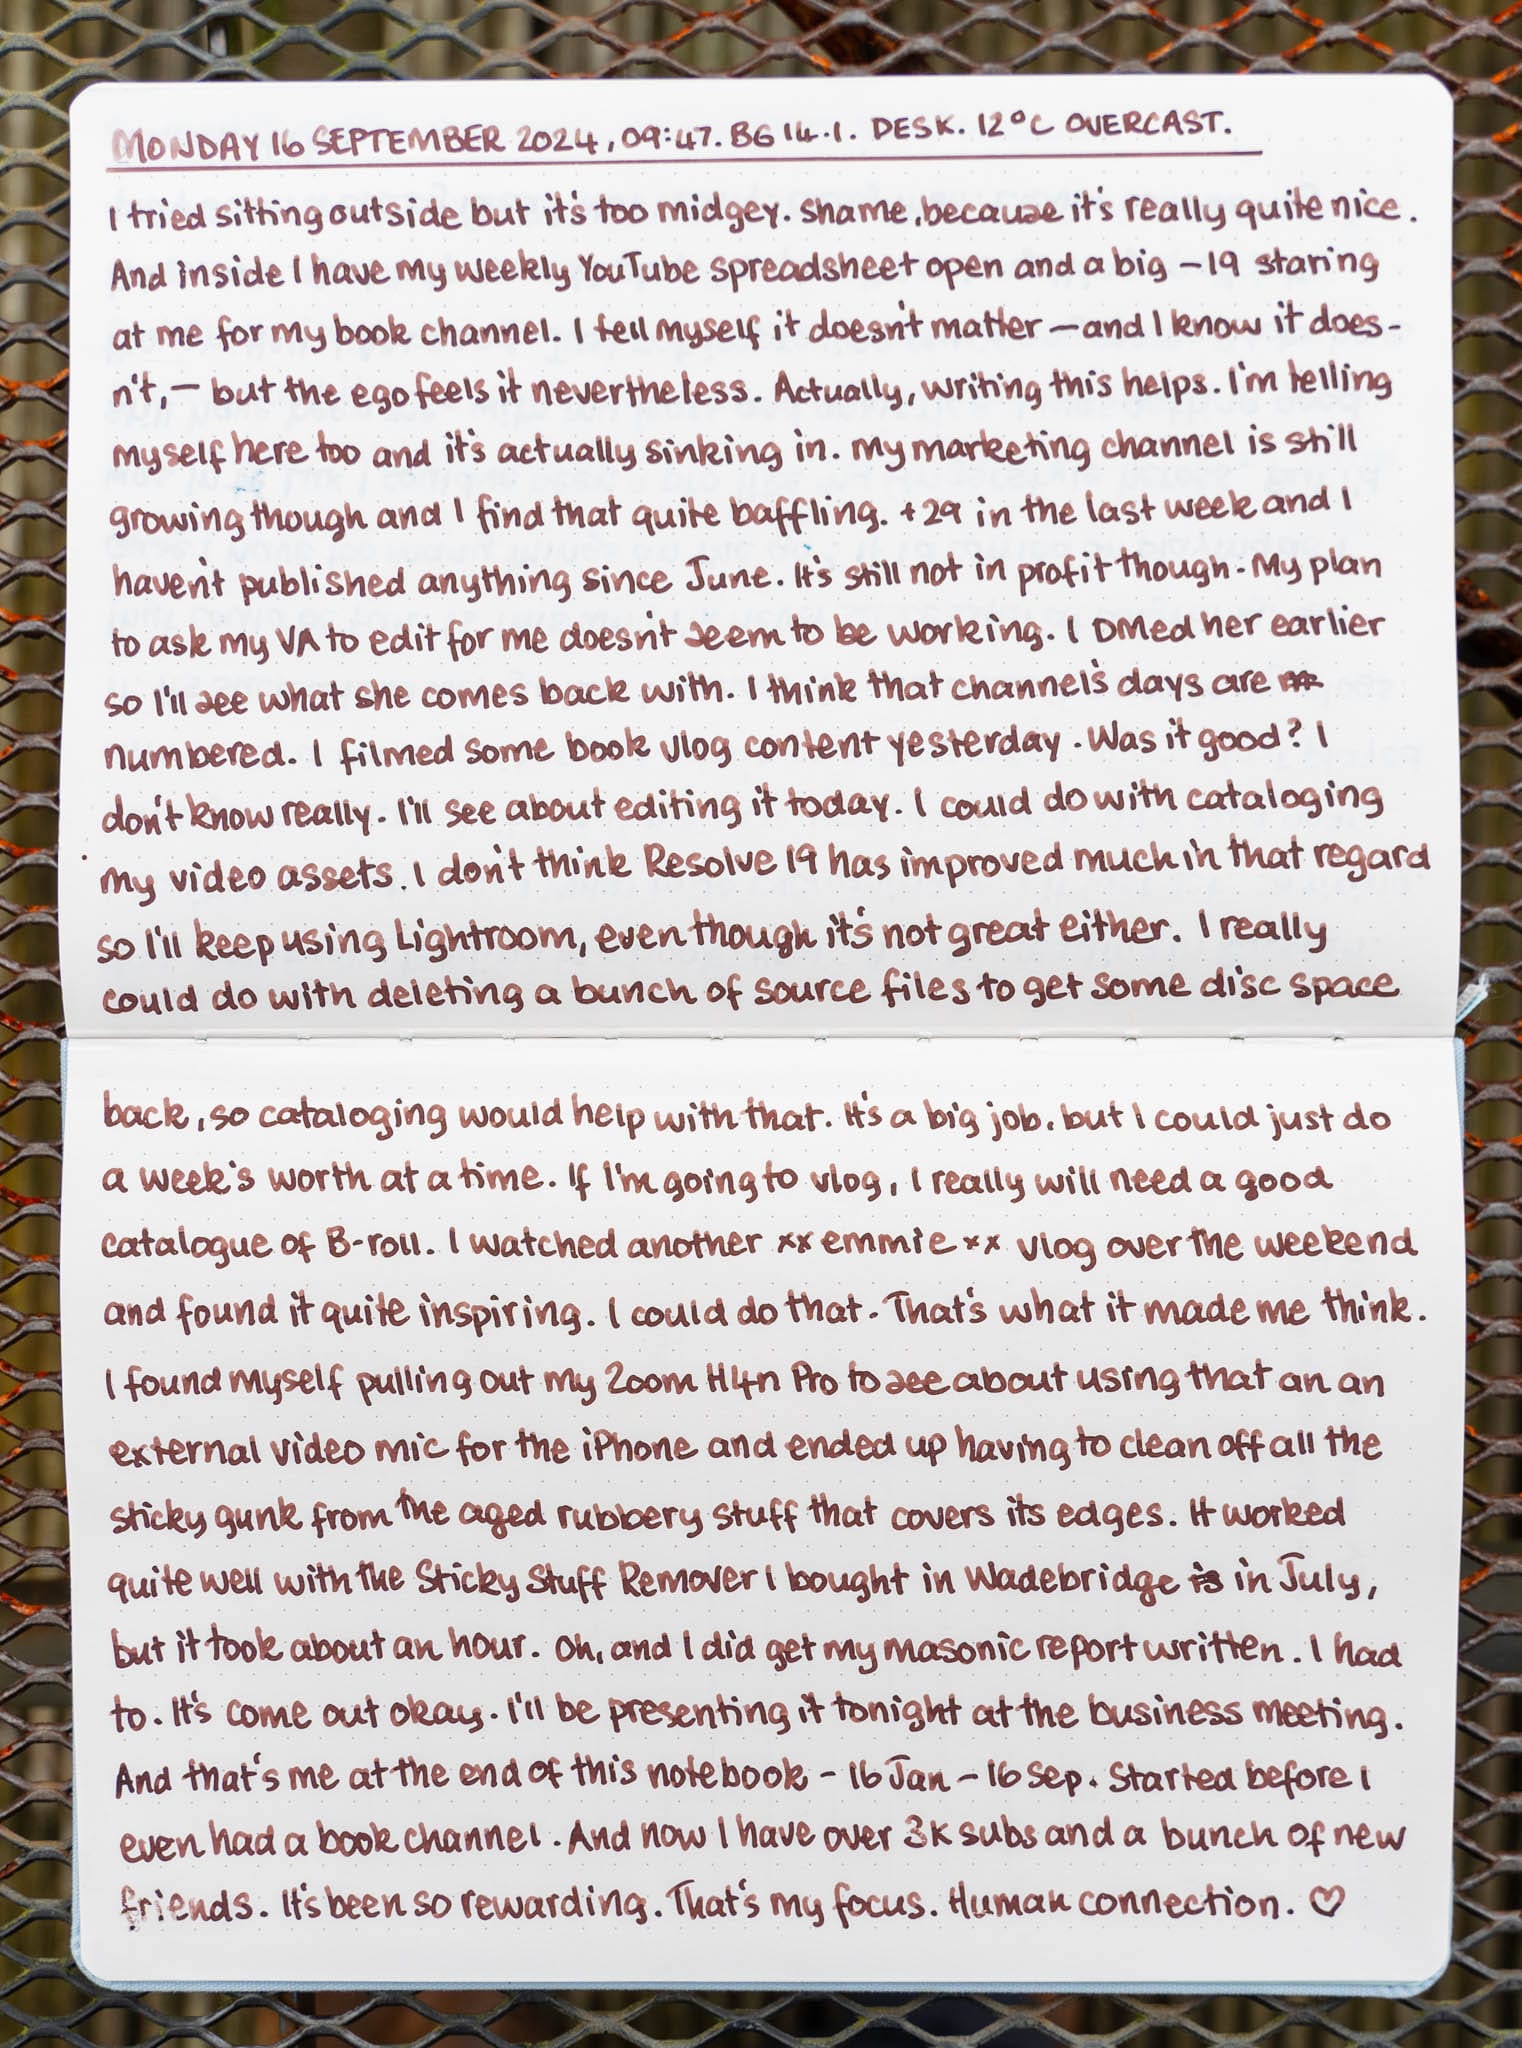 MONDAY 16 SEPTEMBER 2024, 09:47. BG 14.1. DESK. 12°C OVERCAST.
I tried sitting outside but it's too midgey. Shame, because it's really quite nice.
And inside I have my weekly YouTube spreadsheet open and a big –19 staring
at me for my book channel. I tell myself it doesn't matter – and I know it does-
n't, – but the ego feels it nevertheless. Actually, writing this helps. I'm telling
myself here too and it's actually sinking in. My marketing channel is still
growing though and I find that quite baffling. +29 in the last week and I
haven't published anything since June. It's still not in profit though. My plan
to ask my VA to edit for me doesn't seem to be working. I DMed her earlier
so I'll see what she comes back with. I think that channel's days are
numbered. I filmed some book vlog content yesterday. Was it good? I
don't know really. I'll see about editing it today. I could do with cataloging
my video assets. I don't think Resolve 19 has improved much in that regard
so I'll keep using Lightroom, even though it's not great either. I really
could do with deleting a bunch of source files to get some disc space
back, so cataloging would help with that. It's a big job, but I could just do
a week's worth at a time. If I'm going to vlog, I really will need a good
catalogue of B-roll. I watched another xx emmie xx vlog over the weekend
and found it quite inspiring. I could do that. That's what it made me think.
I found myself pulling out my Zoom H4n Pro to see about using that an an
external video mic for the iPhone and ended up having to clean off all the
sticky gunk from the aged rubbery stuff that covers its edges. It worked
quite well with the Sticky Stuff Remover I bought in Wadebridge is in July,
but it took about an hour. Oh, and I did get my masonic report written. I had
to. It's come out okay. I'll be presenting it tonight at the business meeting.
And that's me at the end of this notebook – 16 Jan – 16 Sep. Started before I
even had a book channel. And now I have over 3K subs and a bunch of new
friends. It's been so rewarding. That's my focus. Human connection. ♡